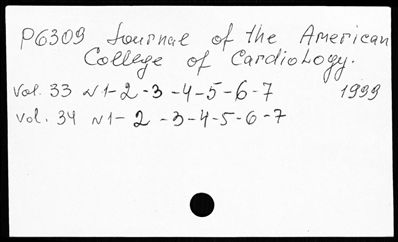 P6309 Journal of the American
College of Cardiology.
Vol. 33 N1-2-3-4-5-6-7 1999
vol. 34 N1-2-3-4-5-6-7